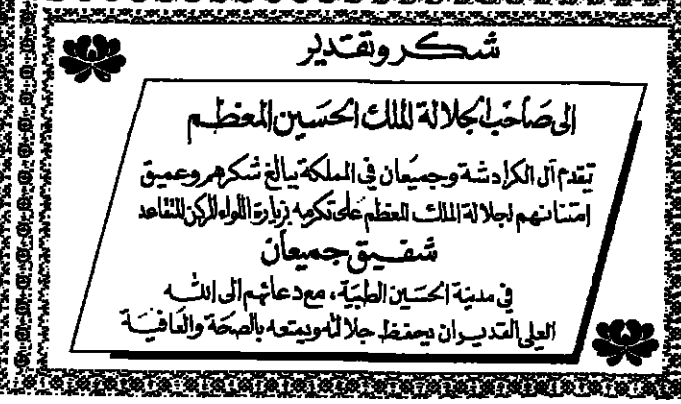 شكر وتقدير
الى صاحب الجلالة الملك الحسين المعظم
يتقدم آل الكرادشة وجميعان في المملكة ببالغ شكرهم وعميق
امتنانهم لجلالة الملك المعظم على تكرمه بزيارة اللواء الركن المتقاعد
شفيق جميعان
في مدينة الحسين الطبية، مع دعائهم الى الله
العلي القدير ان يحفظ جلالته ويمتعه بالصحة والعافية